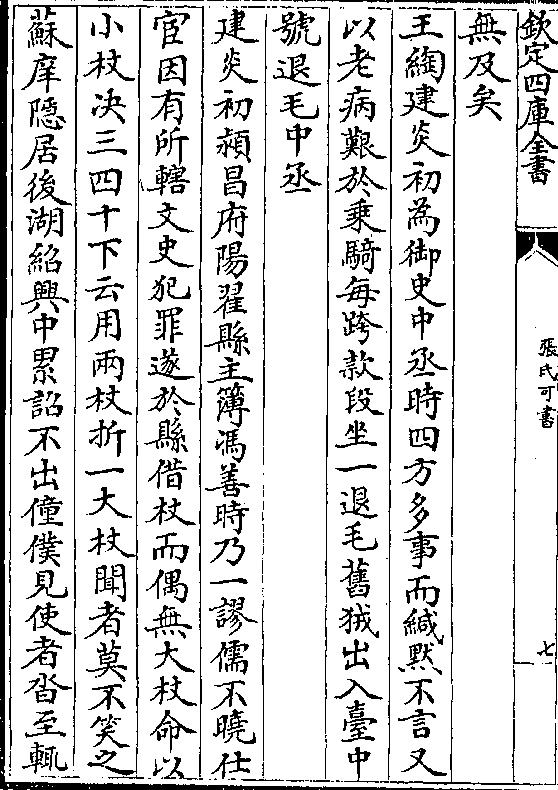 欽定四庫全書
張氏可書
七
無及矣
王綯建炎初為御史中丞時四方多事而緘默不言又
以老病艱於乘騎每跨款段坐一退毛舊狨出入臺中
號退毛中丞
建炎初潁昌府陽翟縣主簿馮善時乃一謬儒不曉仕
宦因有所轄文史犯罪遂於縣借杖而偶無大杖命以
小杖决三四十下云用兩杖折一大杖聞者莫不笑之
蘇庠隱居後湖紹興中累詔不出僮僕見使者沓至輒